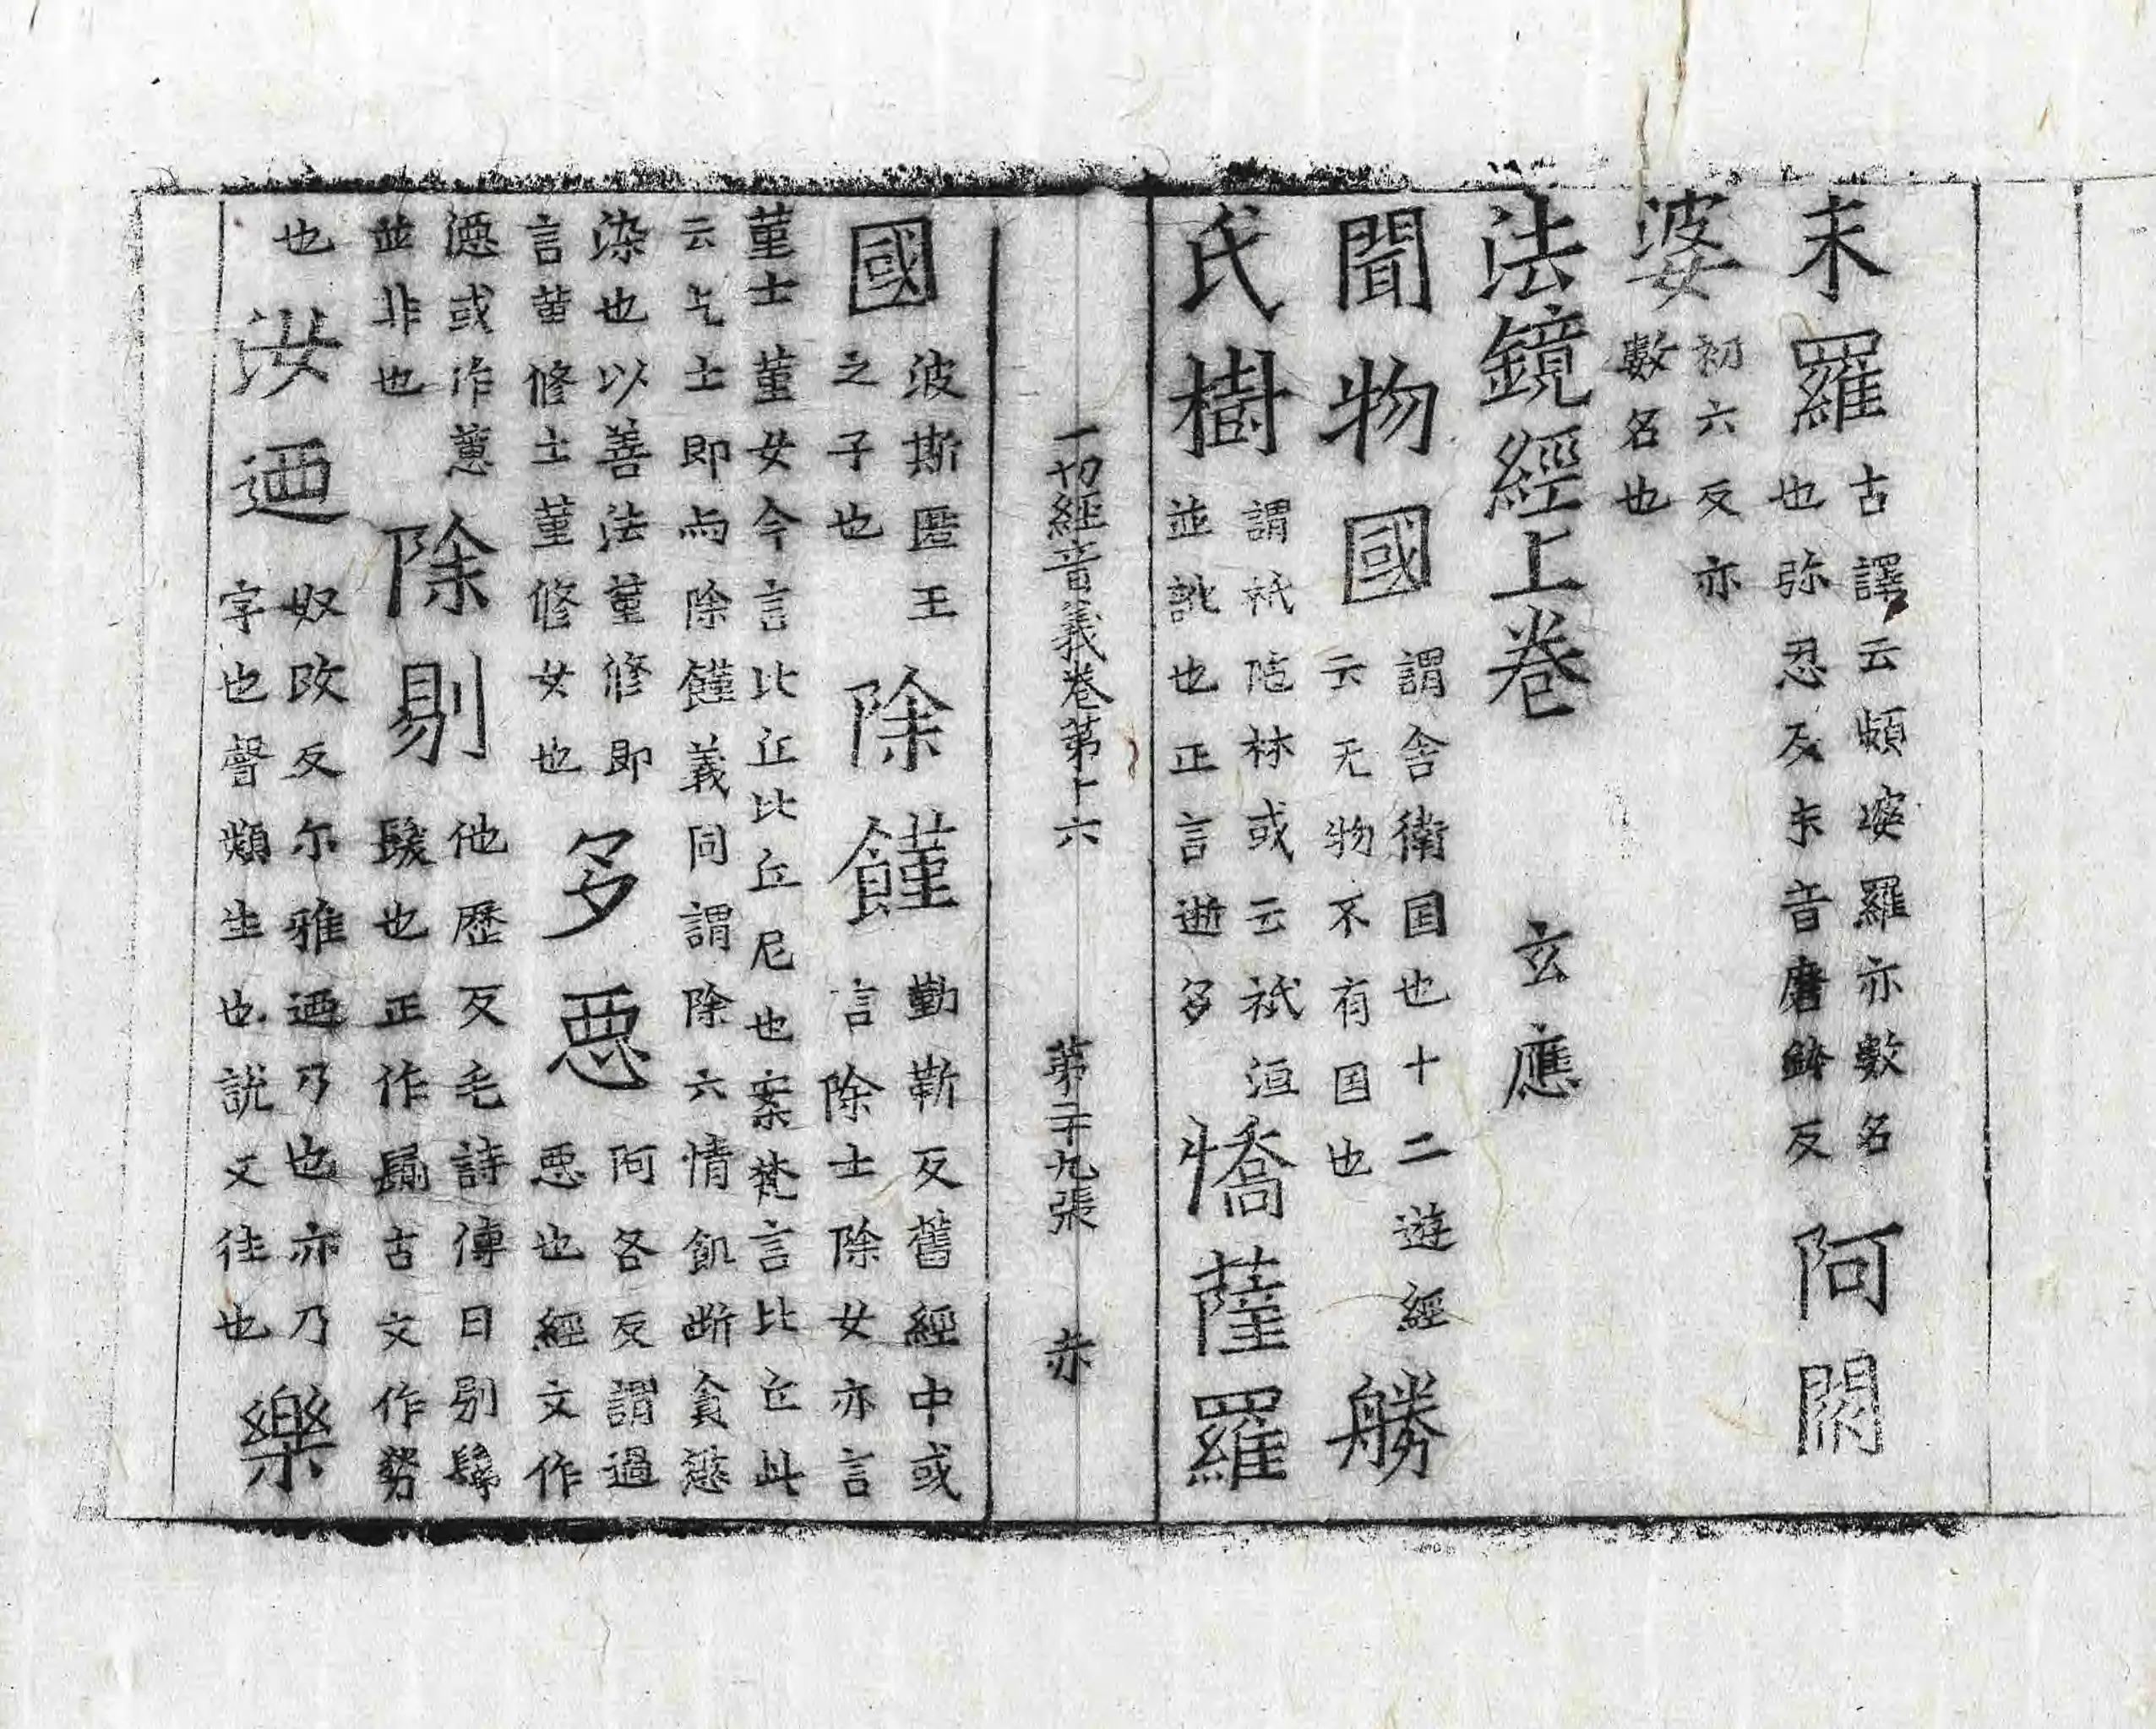 末羅古譯云頻婆羅亦數名
也弥忍反末音磨鉢反阿閦
婆初六反亦
數名也
法鏡經上卷 玄應
聞物國謂舍衛国也十二遊經
云无物不有国也勝
氏樹謂祇陁林或云祇洹
並訛也正言逝多憍薩羅
一切經音義卷第十六 第二十九張 赤
國波斯匿王
之子也除饉勤靳反舊經中或
言除士除女亦言
董士董女今言比丘比丘尼也案梵言比丘此
云乞士即而除饉義同謂除六情飢斷貪慾
染也以善法董修即
言董修士董修女也多惡阿各反謂過
惡也經文作
㥁或作蒠
並非也除剔他歷反毛詩傳曰剔
髲也正作古文作
也汝迺奴改反尔雅迺乃也亦乃
字也聲類生也說文往也樂